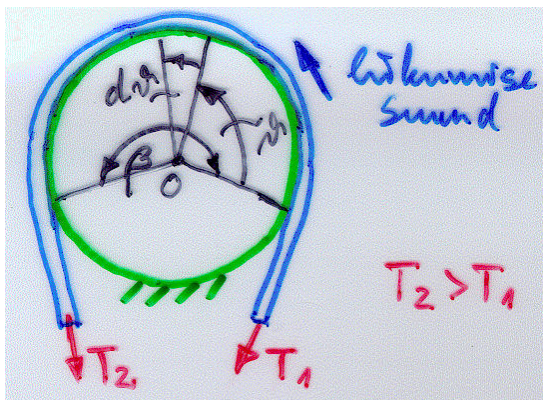 liikumise
suund
dϑ
ϑ
β
O
T₂ > T₁
T₂
T₁